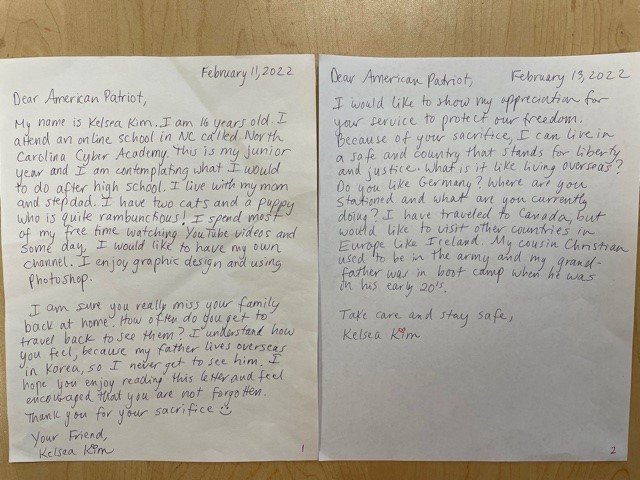 February 11, 2022
Dear American Patriot,
My name is Kelsea Kim. I am 16 years old. I
attend an online school in NC called North
Carolina Cyber Academy. This is my junior
year and I am contemplating what I would
to do after high school. I live with my mom
and stepdad. I have two cats and a puppy
who is quite rambunctious! I spend most
of my free time watching YouTube videos and
some day, I would like to have my own
channel. I enjoy graphic design and using
Photoshop.
I am sure you really miss your family
back at home. How often do you get to
travel back to see them? I understand how
you feel, because my father lives overseas
in Korea, so I never get to see him. I
hope you enjoy reading this letter and feel
encouraged that you are not forgotten.
Thank you for your sacrifice
Your Friend,
Kelsea Kim
1
Dear American Patriot, February 13, 2022
I would like to show my appreciation for
your service to protect our freedom.
Because of your sacrifice, I can live in
a safe and country that stands for liberty
and justice. What is it like living overseas?
Do you like Germany? Where are you
stationed and what are you currently
doing? I have traveled to Canada, but
would like to visit other countries in
Europe like Iceland. My cousin Christian
used to be in the army and my grand-
father was in boot camp when he was
in his early 20's.
Take care and stay safe,
Kelsea Kim
2